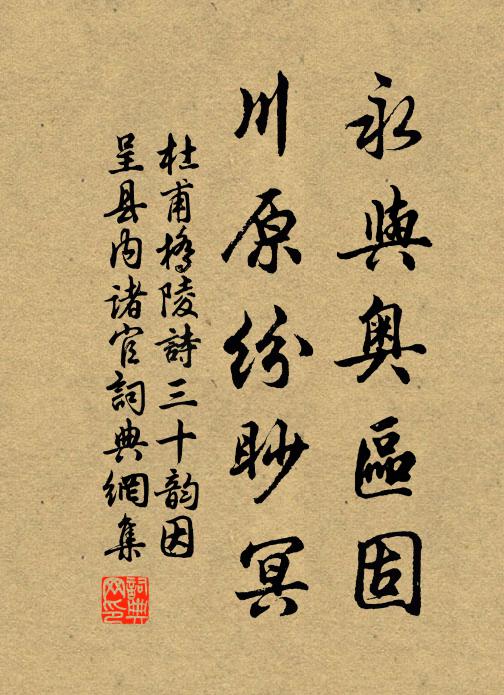 永與奧區固
川原紛眇冥
杜甫橋陵詩三十韵因
呈县内诸官詞典網集